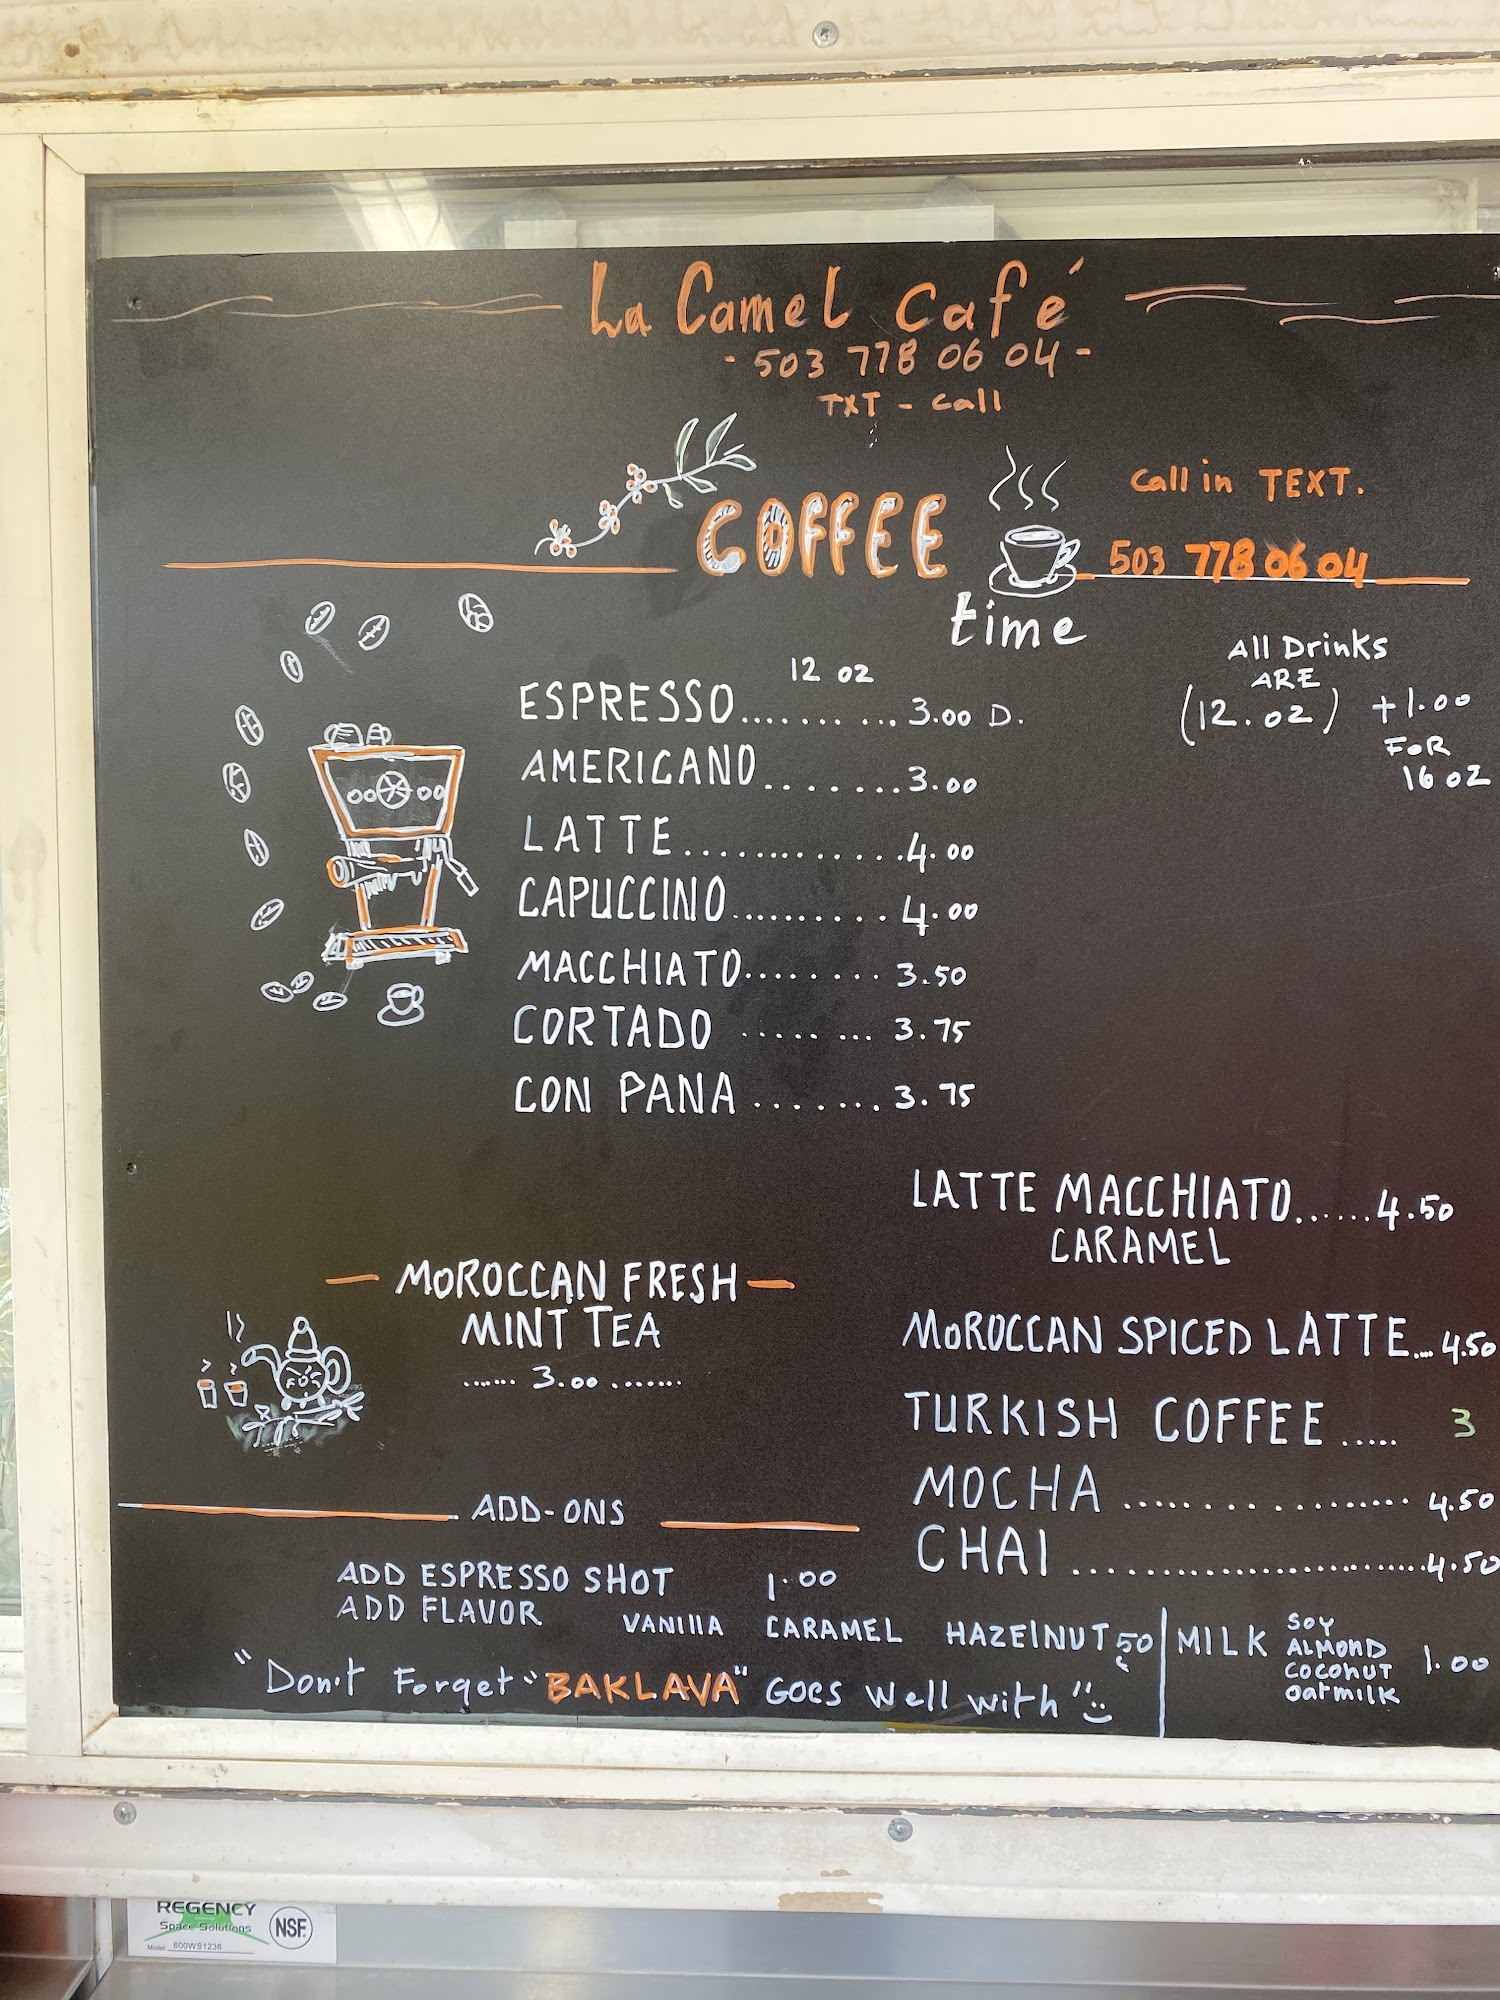 La Camel Café
- 503 778 06 04 -
TXT - Call
COFFEE
time
Call in TEXT.
503 778 06 04
All Drinks
ARE
(12.oz) +1.00
FoR
16 oz
12 oz
ESPRESSO.......... 3.00 D.
AMERICANO........3.00
LATTE............4.00
CAPUCCINO..........4.00
MACCHIATO........3.50
CORTADO ........ 3.75
CON PANA ........3.75
LATTE MACCHIATO......4.50
CARAMEL
MOROCCAN SPICED LATTE....4.50
TURKISH COFFEE ..... 3
MOCHA .................. 4.50
CHAI ..........................4.50
— MOROCCAN FRESH —
MINT TEA
...... 3.00 .......
ADD-ONS
ADD ESPRESSO SHOT 1.00
ADD FLAVOR VANIllA CARAMEL HAZElNUT 50 c
MILK SOY
ALMOND
COCONUT 1.00
OatmilK
"Don't Forget "BAKLAVA" Goes well with"
REGENCY
Space Solutions
NSF.
Model: 600WS1236